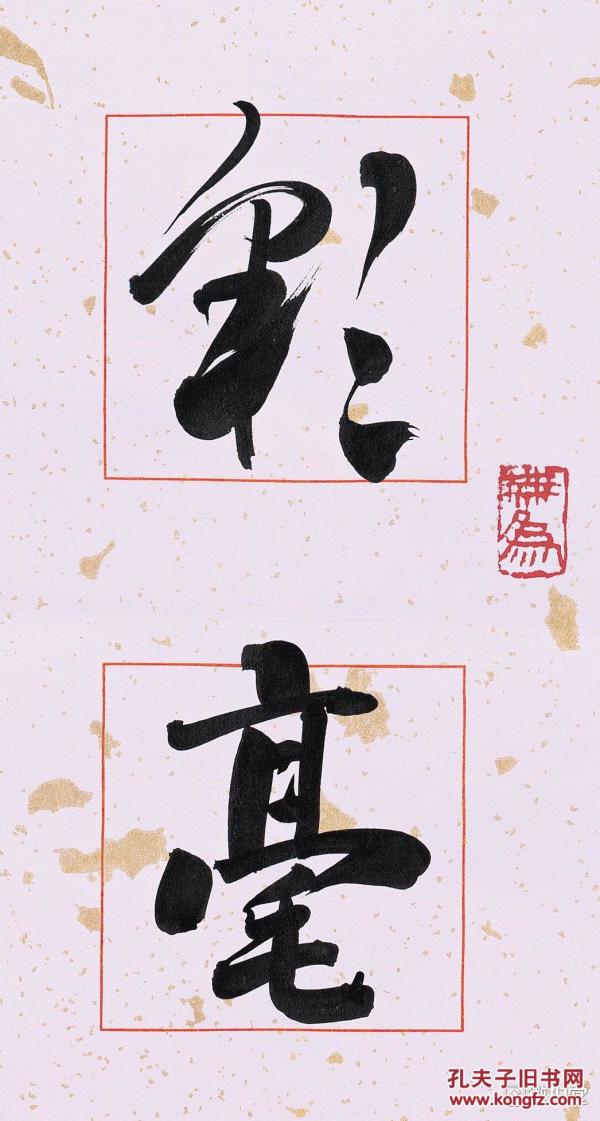 彩
毫
無為
孔夫子旧书网
www.kongfz.com